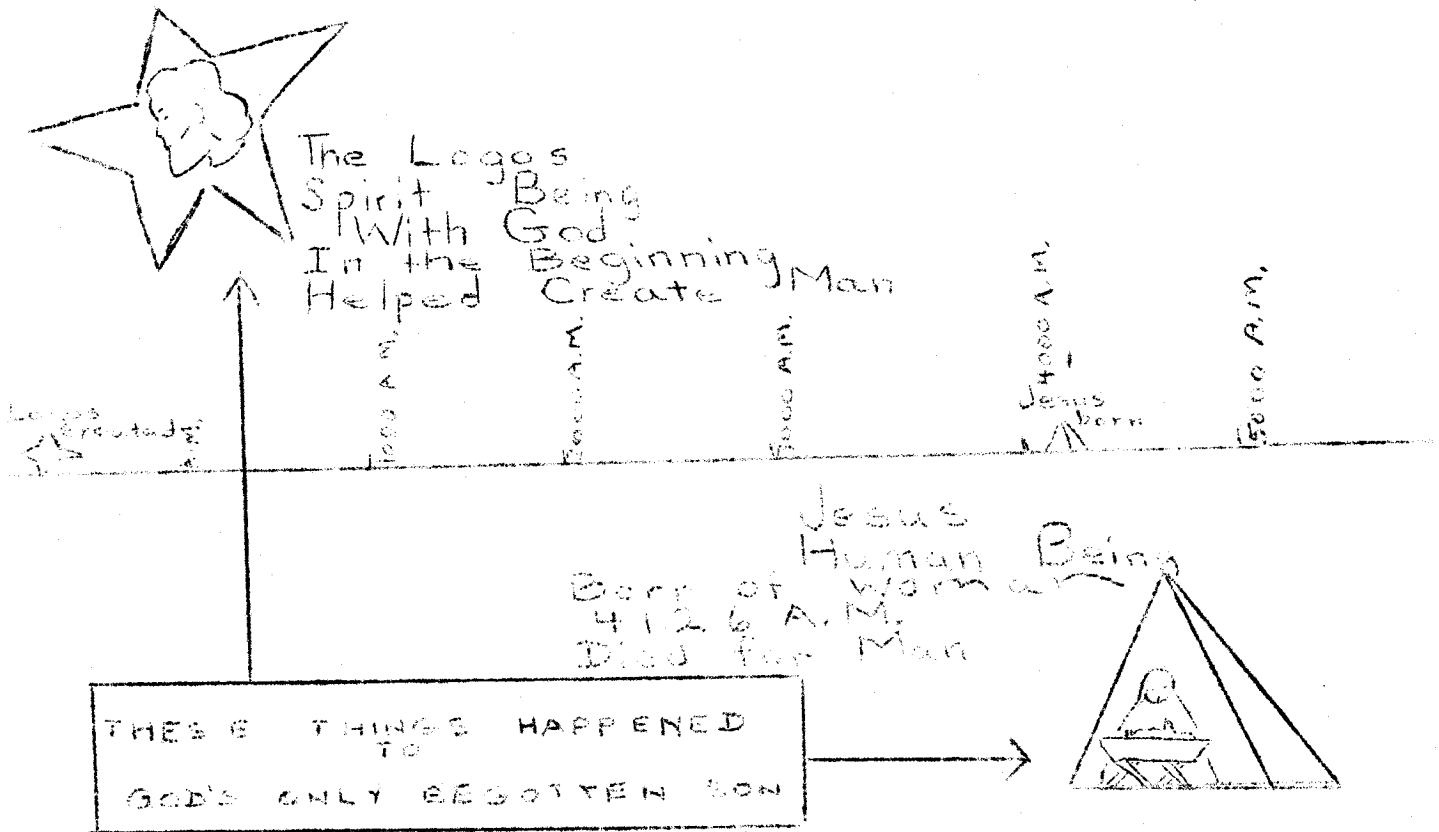 The Logos
Spirit Being
With God
In the Beginning
Helped Create Man
Logos
Created
1000 A.M.
2000 A.M.
3000 A.M.
4000 A.M.
Jesus
born
5000 A.M.
Jesus
Human Being
Born of Woman
4126 A.M.
Died for Man
THESE THINGS HAPPENED
TO
GOD'S ONLY BEGOTTEN SON